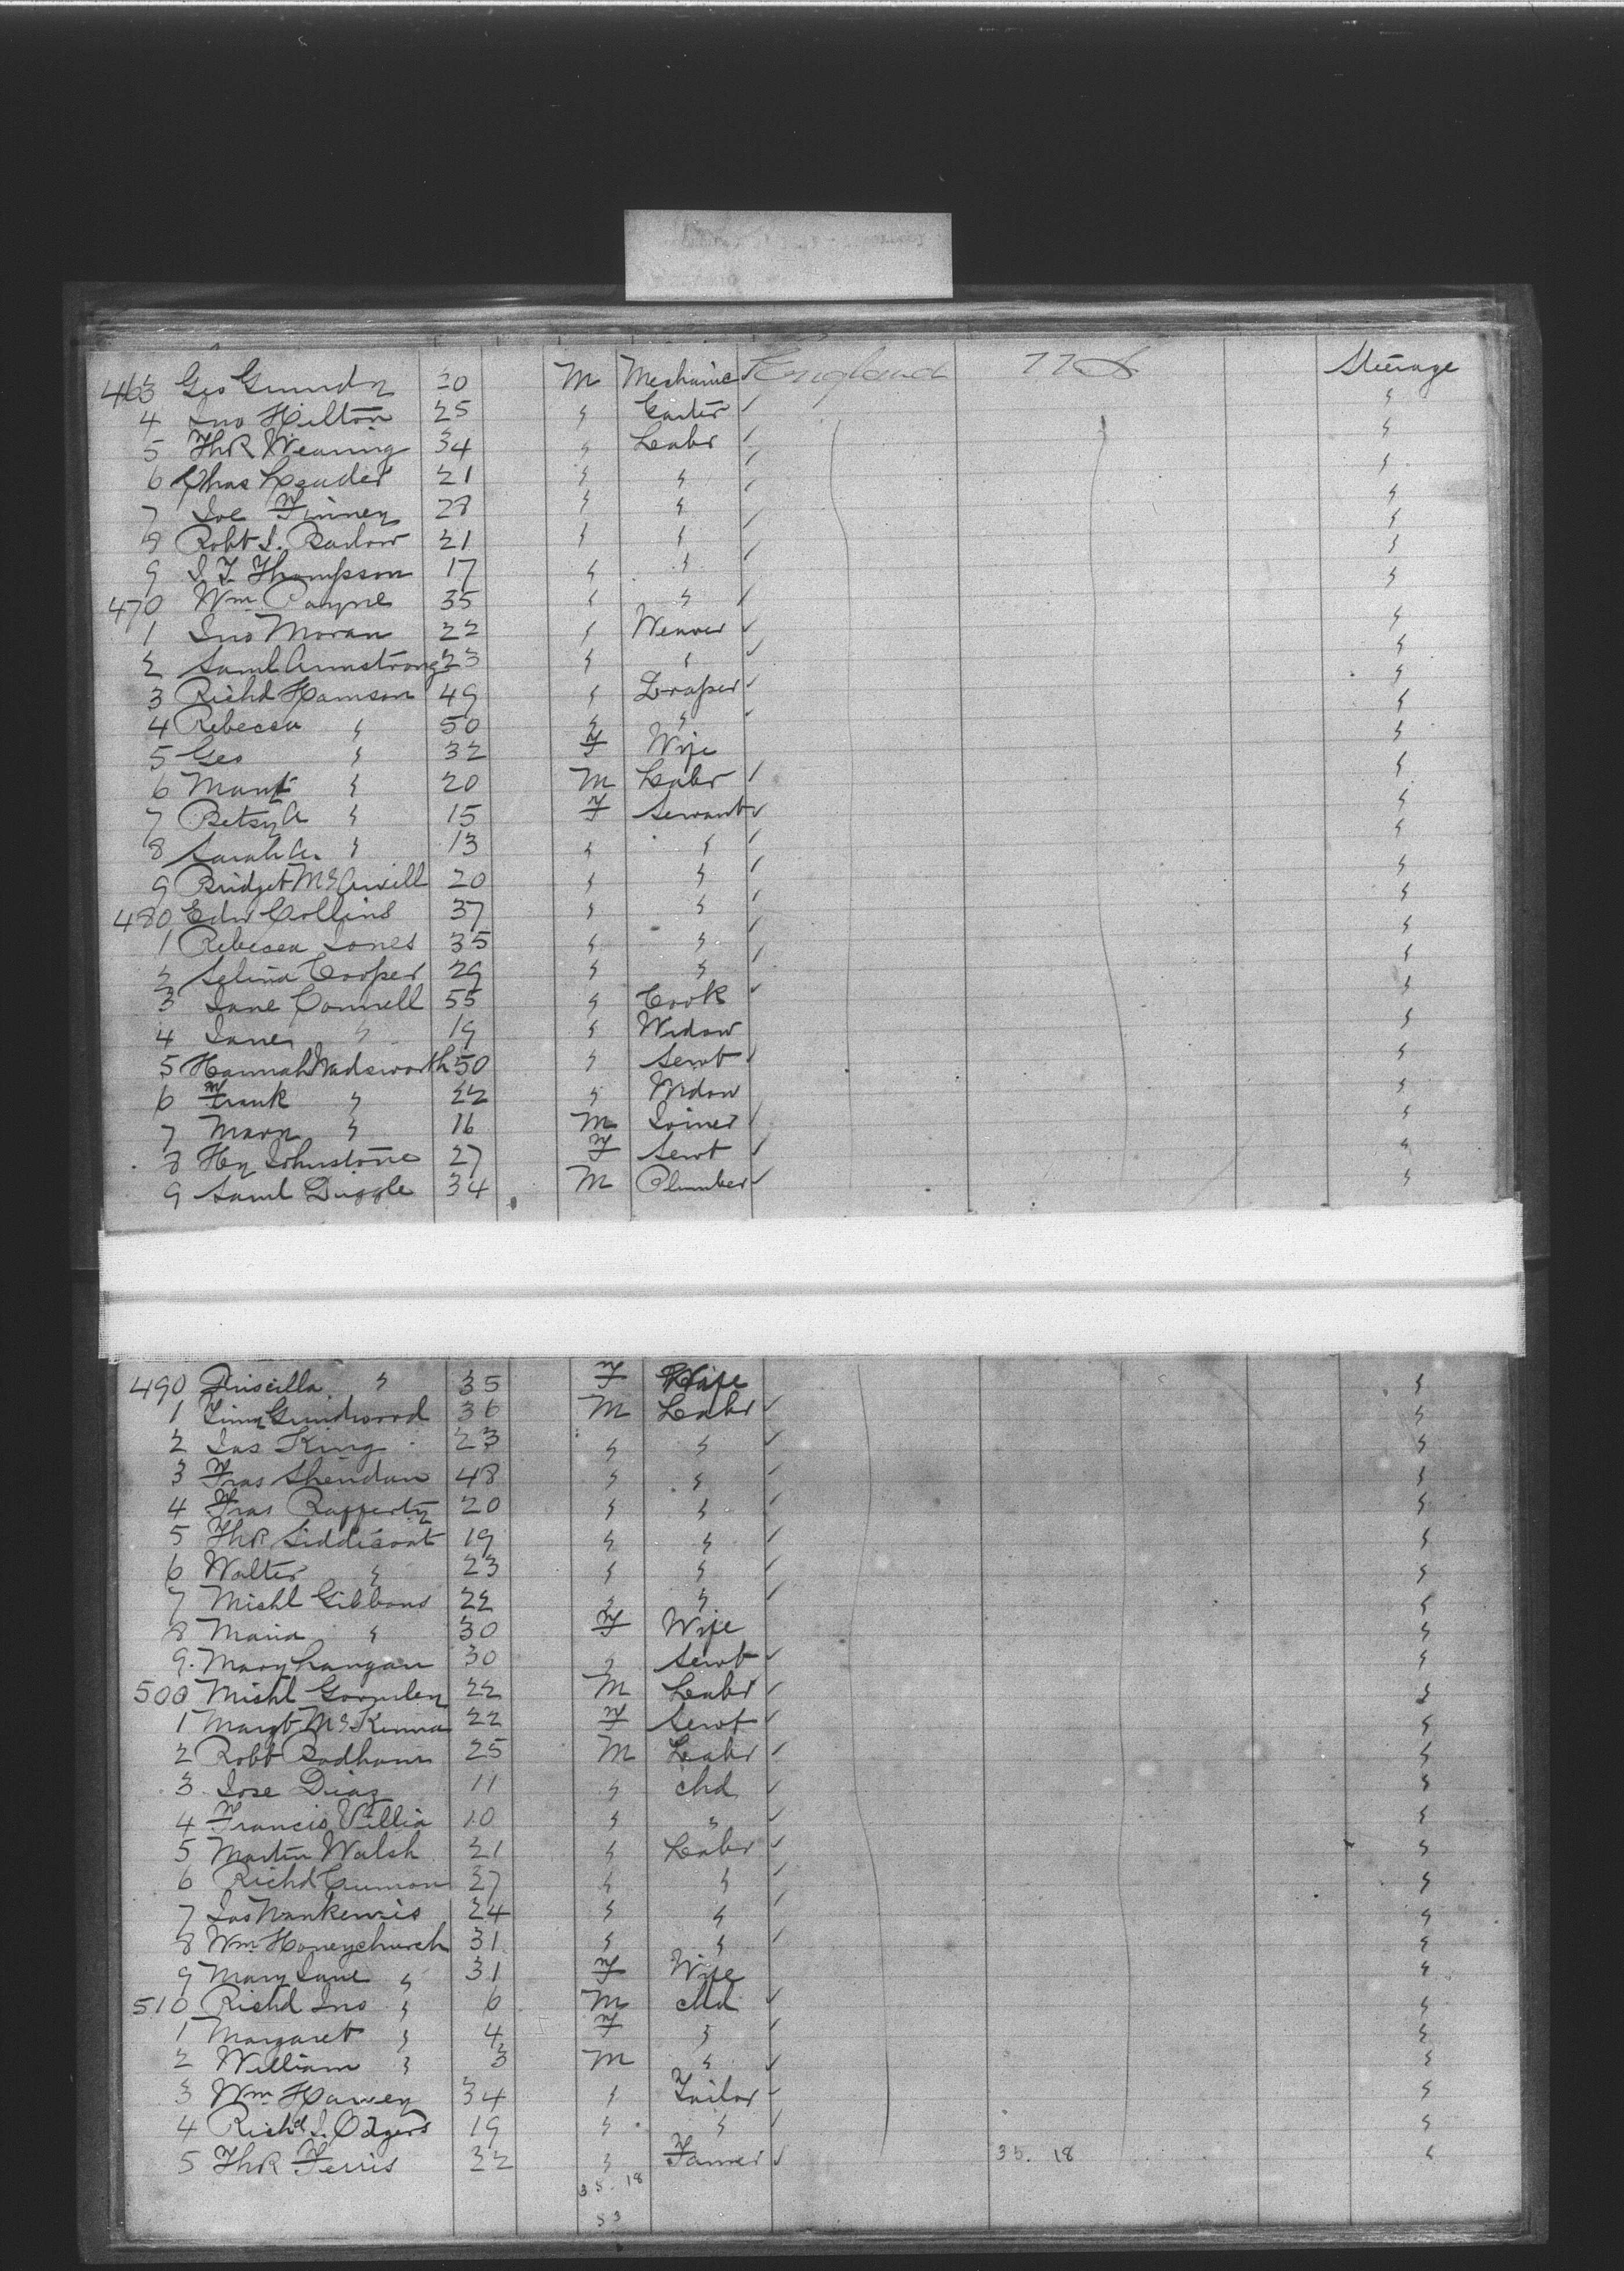 463 Geo Grundy 20 M Mechanic England U S Steerage
4 Jno Hilton 25 " Carter "
5 Thos Wearing 34 " Labr "
6 Chas Leader 21 " " "
7 Joe Finney 28 " " "
8 Robt J. Barlow 21 " " "
9 J. T. Thompson 17 " " "
470 Wm Payne 35 " " "
1 Jno Moran 22 " Weaver "
2 Saml Armstrong 23 " " "
3 Richd Hamson 49 " Draper "
4 Rebecca " 50 " " "
5 Geo " 32 F Wife "
6 Mary " 20 M Labr "
7 Betsy A " 15 F Servant "
8 Sarah A. " 13 " " "
9 Bridget 20 " " "
480 Edw Collins 37 " " "
1 Rebecca Jones 35 " " "
2 Selina Cooper 29 " " "
3 Jane Connell 55 " Cook "
4 Jane " 19 " Widow "
5 Hannah Wadsworth 50 " Servt "
6 Frank " 22 " Widow "
7 Mary " 16 M Joiner "
8 Hy Johnstone 27 F Servt "
9 Saml Duggle 34 M Plumber "
490 Priscilla " 35 F Wife "
1 Grindwood 36 M Labr "
2 Jas King 23 " " "
3 Fras Sheridan 48 " " "
4 Fras Rafferty 20 " " "
5 Thos Siddicoat 19 " " "
6 Walter " 23 " " "
7 Michl Gibbons 22 " " "
8 Maria " 30 F Wife "
9 Mary Langan 30 " Servt "
500 Michl Gormley 22 M Labr "
1 Margt McKenna 22 F Servt "
2 Robt Badham 25 M Labr "
3 Jose Diaz 11 " chd "
4 Francis Villia 10 " " "
5 Martin Walsh 21 " Labr "
6 Richd 27 " " "
7 Jas Nankervis 24 " " "
8 Wm Honeychurch 31 " " "
9 Mary Jane " 31 F Wife "
510 Richd Jno " 6 M chd "
1 Margaret " 4 F " "
2 William " 3 M " "
3 Wm Harvey 34 " Tailor "
4 Richd J. Odgers 19 " " "
5 Thos Ferris 22 " Farmer 35. 18 "
35. 18
53